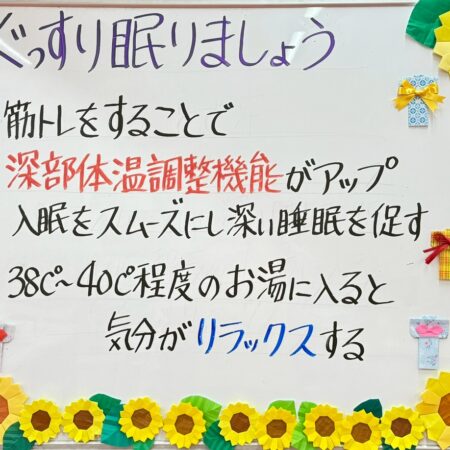 ぐっすり眠りましょう
筋トレをすることで
深部体温調整機能がアップ
入眠をスムーズにし深い睡眠を促す
38℃～40℃程度のお湯に入ると
気分がリラックスする